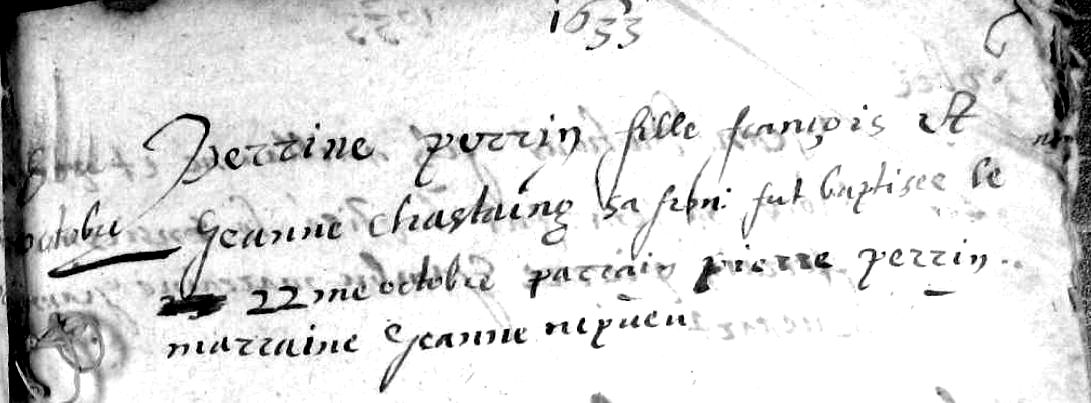 1633
Perrine perrin fille françois et
octobre Geanne Chastaing sa fem: fut baptisee le
22me octobre parrain pierre perrin
marraine Geanne nepveu